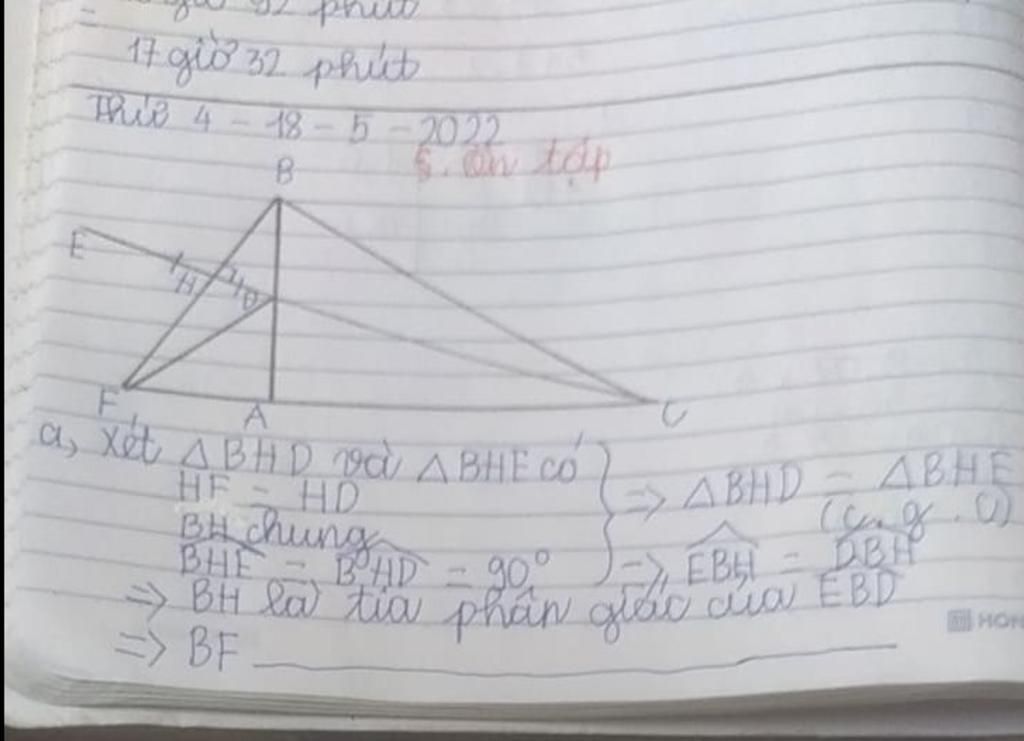 = giờ 32 phút
17 giờ 32 phút
Thứ 4 - 18 - 5 - 2022
§. Ôn tập
B
E
H
D
F
A
C
a, Xét △BHD và △BHE có
HE = HD
BH chung
BHE = BHD = 90°
=> △BHD = △BHE
(c.g.c)
=> EBH = DBH
=> BH là tia phân giác của EBD
=> BF
HON